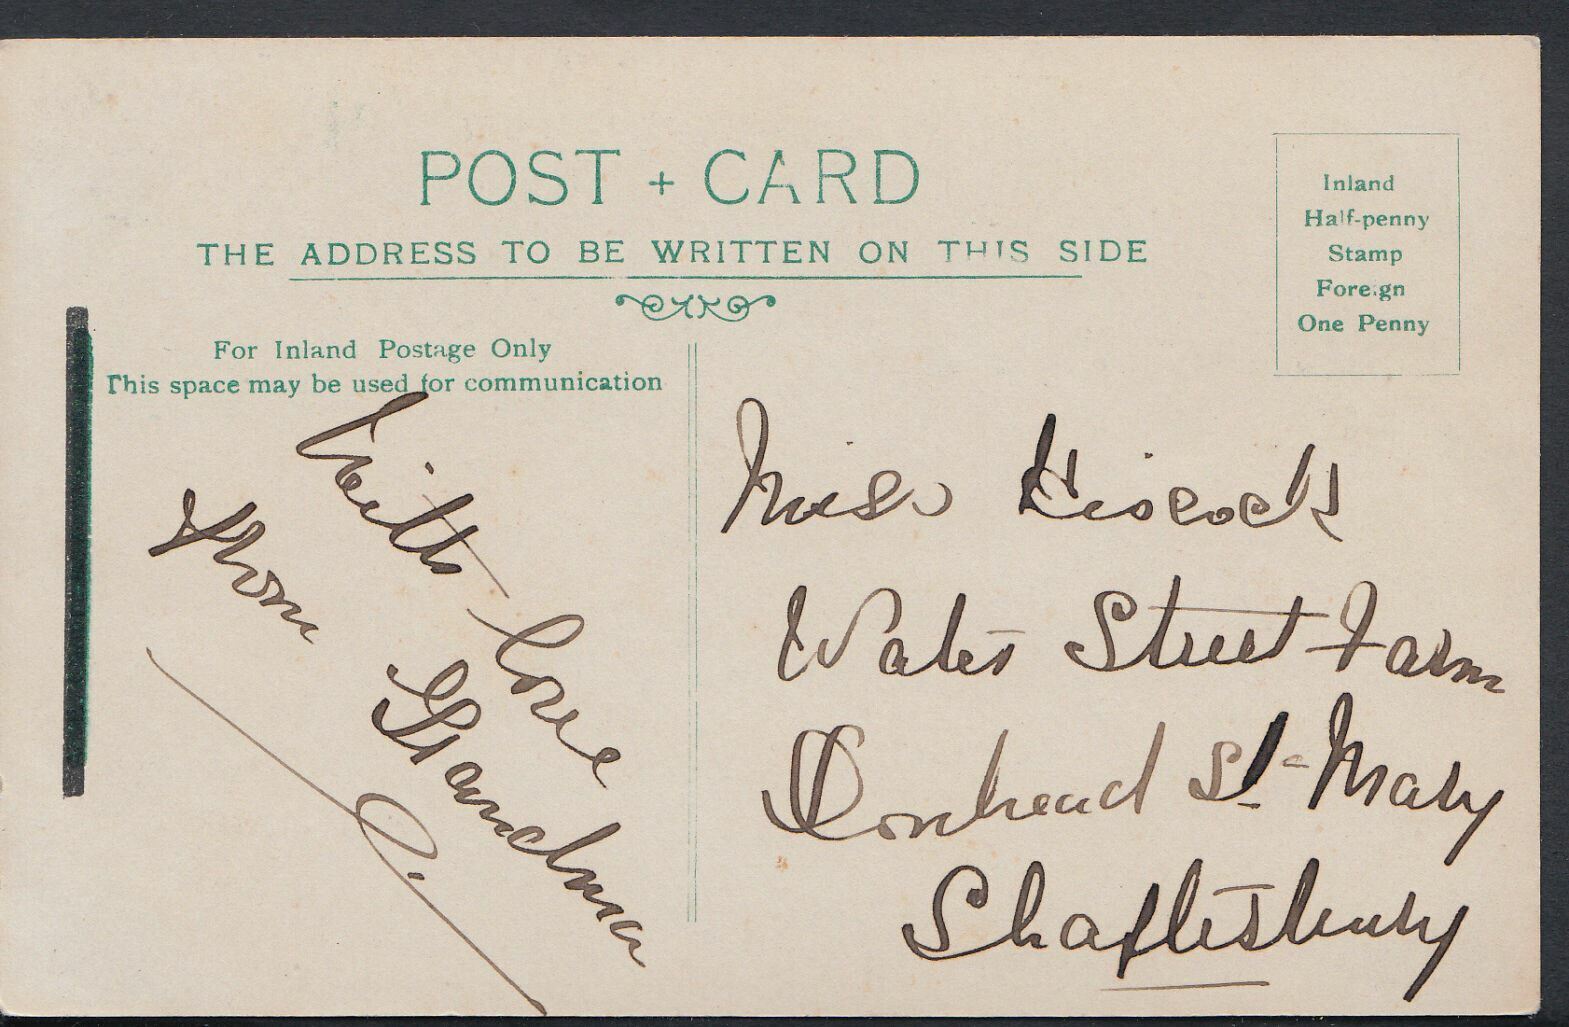 POST + CARD
THE ADDRESS TO BE WRITTEN ON THIS SIDE
Inland
Half-penny
Stamp
Foreign
One Penny
For Inland Postage Only
This space may be used for communication
With love
from Grandma
Miss Hiscock
Water Street Farm
Donhead St- Mary
Shaftesbury